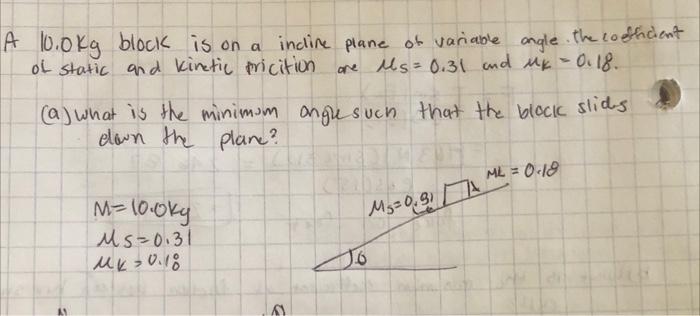 A 10.0kg block is on a incline plane of variable angle. the coefficient
of static and kinetic friction are μs = 0.31 and μk = 0.18.
(a) what is the minimum angle such that the block slides
down the plane?
μk = 0.18
M = 10.0kg
μs = 0.31
μs = 0.31
μk = 0.18
θ